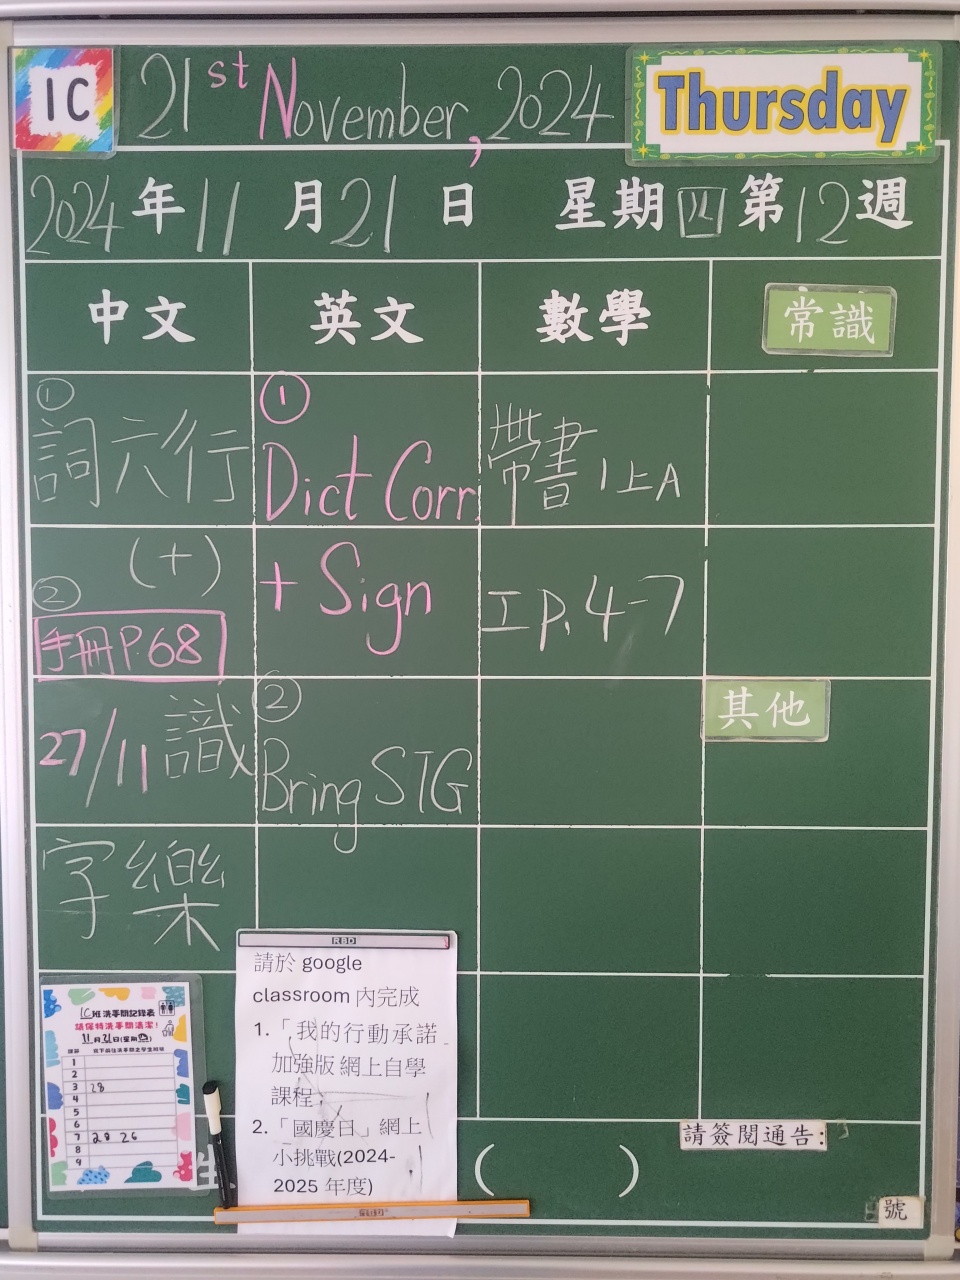 1C
21st November, 2024
Thursday
2024年11月21日 星期四 第12週
中文
英文
數學
常識
①
詞六行
(+)
②
手冊P.68
27/11 識
字樂
①
Dict Corr
+ Sign
②
Bring STG
帶書1上A
工P.4-7
其他
RBD
請於 google
classroom 內完成
1.「我的行動承諾
加強版 網上自學
課程;
2.「國慶日」網上
小挑戰(2024-
2025 年度)
1C班洗手間記錄表
請保持洗手間清潔!
11月21日(星期四)
1
2
3 28
4
5
6
7 28 26
8
9
生
( )
請簽閱通告:
號